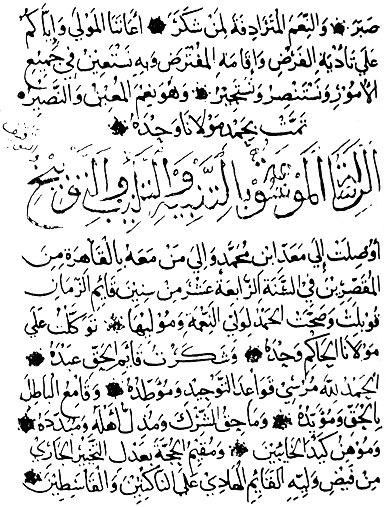 صبر * والنعم المترادفة لمن شكر * أعاننا المولى وإياكم
على تأدية الفرض وإقامة المفترض وبه نستعين في جميع
الأمور ونستنصر ونستجير * وهو نعم المعين والنصير
تمت بحمد مولانا وحده *
الرسالة الموسومة بالتنبيه والتأنيب والتوبيخ
أوصلت إلى معد ابن محمد وإلى من معه بالقاهرة من
المقصرين في السنة الرابعة عشر من سنين قائم الزمان
قوبلت وصحت الحمد لولي النعمة وموليها * توكلت على
مولانا الحاكم وحده * وشكرت قائم الحق عبده *
الحمد لله مرسي قواعد التوحيد وموطده * وقامع الباطل
بالحق ومؤيده * وماحق الشرك ومذل أهله ومبدده *
وموهن كيد الخائنين * ومقيم الحجة بعدل التخيير الجاري
من فيض وليه القائم الهادي على الناكثين والقاسطين *